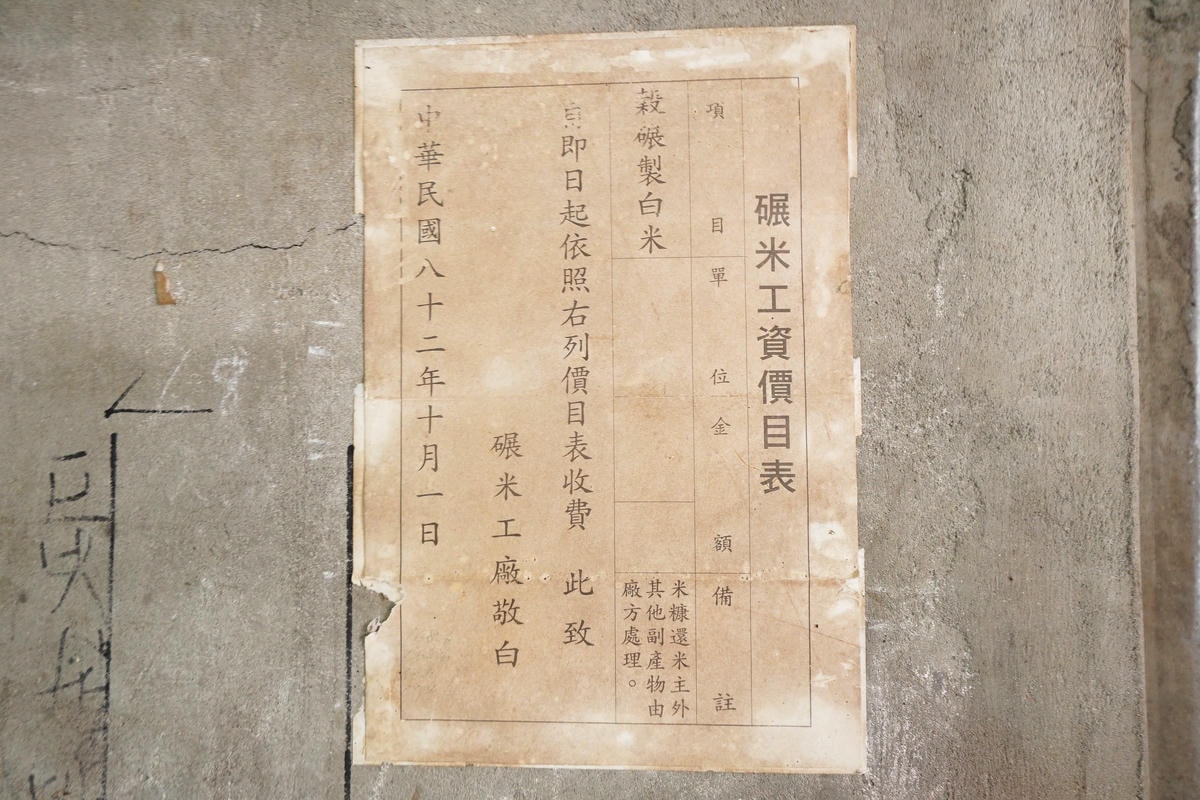 碾米工資價目表
項目
單位
金額
備註
穀碾製白米
米糠還米主外
其他副產物由
廠方處理。
自即日起依照右列價目表收費 此致
碾米工廠敬白
中華民國八十二年十月一日